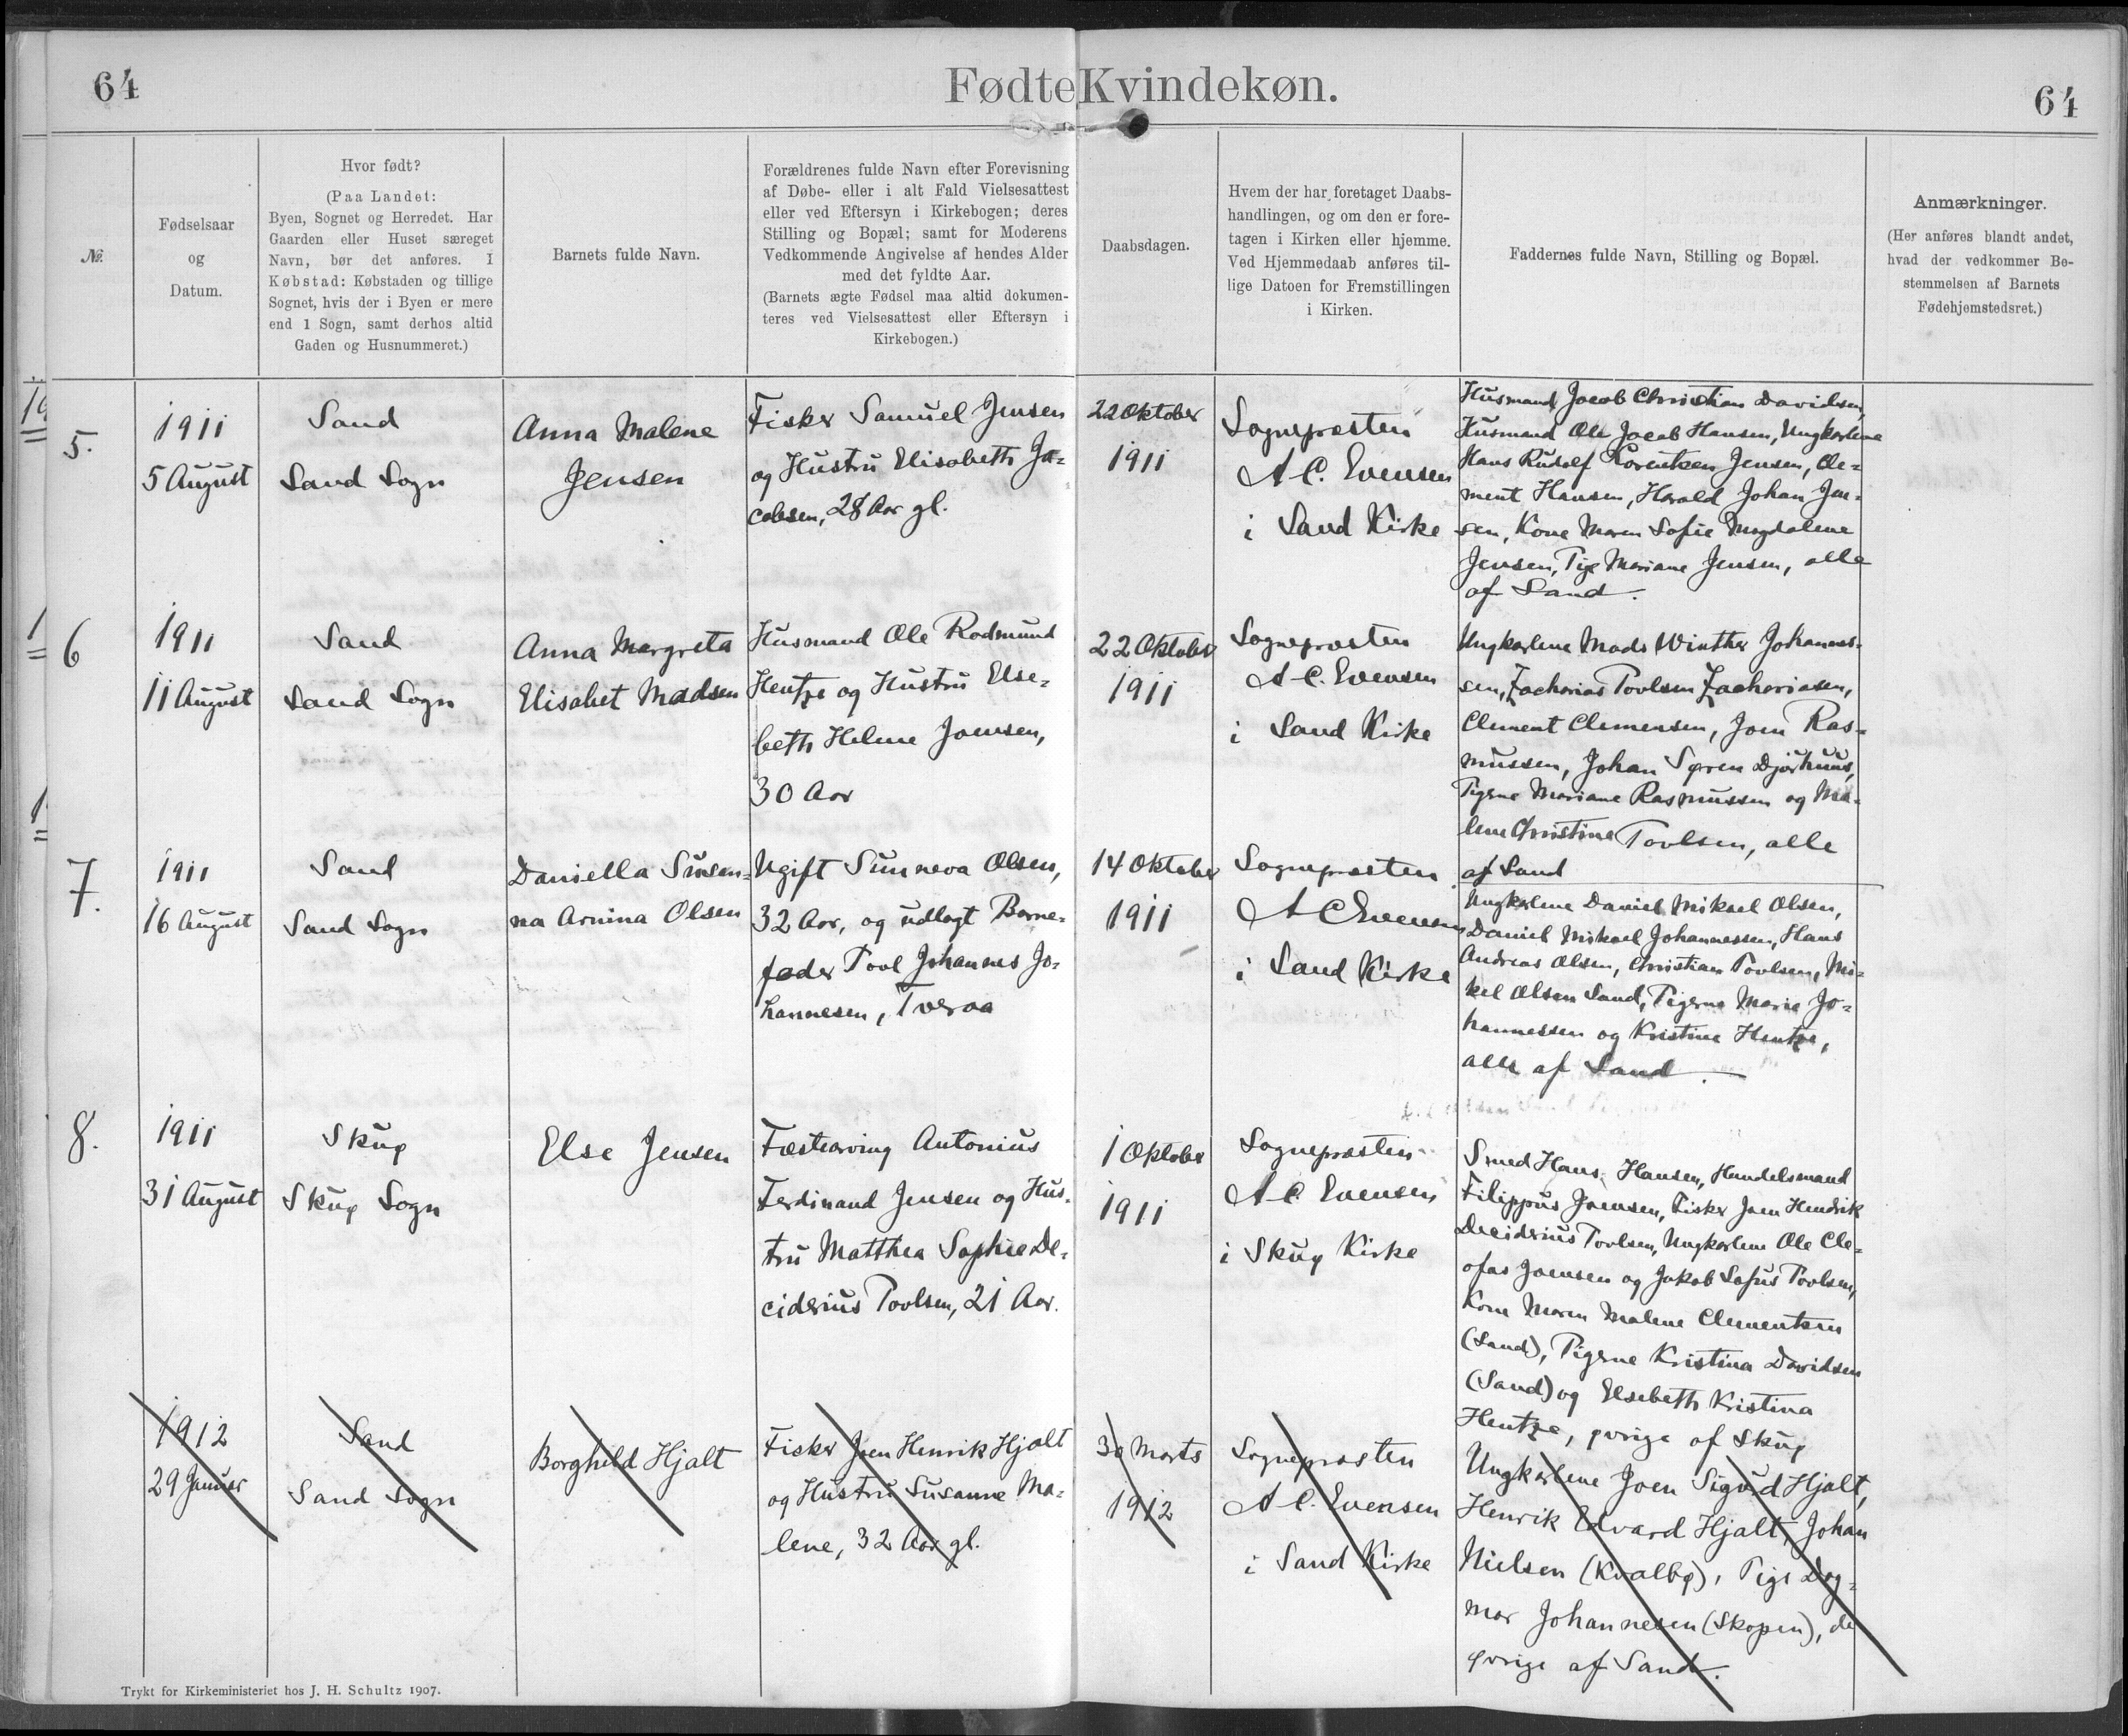 64
Fødte Kvindekøn.
64
№.
Fødselsaar
og
Datum.
Hvor født?
(Paa Landet:
Byen, Sognet og Herredet. Har
Gaarden eller Huset særeget
Navn, bør det anføres. I
Købstad: Købstaden og tillige
Sognet, hvis der i Byen er mere
end 1 Sogn, samt derhos altid
Gaden og Husnummeret.)
Barnets fulde Navn.
Forældrenes fulde Navn efter Forevisning
af Døbe- eller i alt Fald Vielsesattest
eller ved Eftersyn i Kirkebogen; deres
Stilling og Bopæl; samt for Moderens
Vedkommende Angivelse af hendes Alder
med det fyldte Aar.
(Barnets ægte Fødsel maa altid dokumen-
teres ved Vielsesattest eller Eftersyn i
Kirkebogen.)
Daabsdagen.
Hvem der har foretaget Daabs-
handlingen, og om den er fore-
tagen i Kirken eller hjemme.
Ved Hjemmedaab anføres til-
lige Datoen for Fremstillingen
i Kirken.
Faddernes fulde Navn, Stilling og Bopæl.
Anmærkninger.
(Her anføres blandt andet,
hvad der vedkommer Be-
stemmelsen af Barnets
Fødehjemstedsret.)
5.
1911
5 August
Sand
Sand Sogn
Anna Malene
Jensen
Fisker Samuel Jensen
og Hustru Elisabeth Ja-
cobsen, 28 Aar gl.
22 Oktober
1911
Sognepræsten
A. C. Evensen
i Sand Kirke
Husmand Jacob Christian Davidsen,
Husmand Ole Jacob Hansen, Ungkarlene
Hans Rudolf Lorentzen Jensen, Cle-
ment Hansen, Harald Johan Jen-
sen, Kone Maren Sofie Magdalene
Jensen, Pige Mariane Jensen, alle
af Sand.
6
1911
11 August
Sand
Sand Sogn
Anna Margreta
Elisabet Madsen
Husmand Ole Rodmund
Hentze og Hustru Else-
beth Helene Joensen,
30 Aar
22 Oktober
1911
Sognepræsten
A. C. Evensen
i Sand Kirke
Ungkarlene Mads Winther Johannes-
sen, Zacharias Poulsen Zachariasen,
Clement Clemensen, Joen Ras-
mussen, Johan Søren Djurhuus,
Pigerne Mariane Rasmussen og Ma-
lene Christine Poulsen, alle
af Sand
7.
1911
16 August
Sand
Sand Sogn
Daniella Susan-
na Arnina Olsen
Ugift Sunneva Olsen,
32 Aar, og udlagt Barne-
fader Poul Johannes Jo-
hannesen, Tveraa
14 Oktober
1911
Sognepræsten
A C Evensen
i Sand Kirke
Ungkarlene Daniel Mikael Olsen,
Daniel Mikael Johannessen, Hans
Andreas Olsen, Christian Poulsen, Mi-
kel Olsen Sand, Pigerne Marie Jo-
hannessen og Kristine Hentze,
alle af Sand.
8.
1911
31 August
Skup
Skup Sogn
Else Jensen
Fæstearving Antonius
Ferdinand Jensen og Hus-
tru Matthea Sophie De-
ciderius Poulsen, 21 Aar.
1 Oktober
1911
Sognepræsten
A. C. Evensen
i Skup Kirke
Smed Hans Hansen, Handelsmand
Filippus Joensen, Fisker Joen Hendrik
Deciderius Poulsen, Ungkarlene Ole Cle-
ofas Joensen og Jakob Sofus Poulsen,
Kone Maren Malene Clementsen
(Sand), Pigerne Kristina Davidsen
(Sand) og Elsebeth Kristina
Hentze, øvrige af Skup
1912
29 Januar
Sand
Sand Sogn
Borghild Hjalt
Fisker Joen Henrik Hjalt
og Hustru Susanne Ma-
lene, 32 Aar gl.
30 Marts
1912
Sognepræsten
A. C. Evensen
i Sand Kirke
Ungkarlene Joen Sigurd Hjalt,
Henrik Edvard Hjalt, Johan
Nielsen (Kvalbø), Pige Dag-
mar Johannesen (Skopen), de
øvrige af Sand.
Trykt for Kirkeministeriet hos J. H. Schultz 1907.